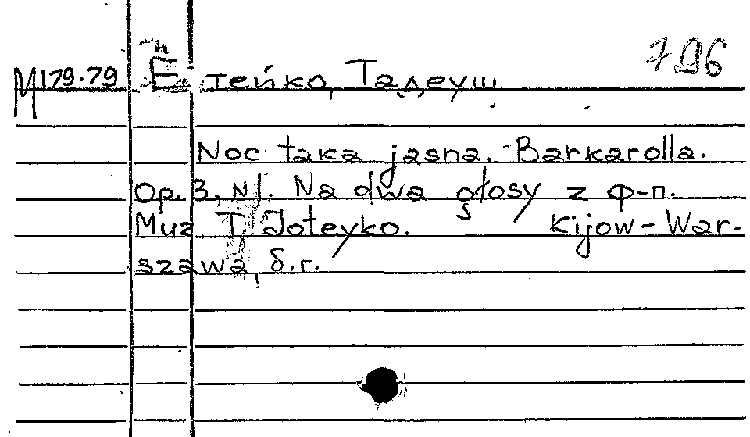 796
M179.79 Йотейко, Тадеуш
Noc taka jasna. Barkarolla.
Op. 3, N1. Na dwa głosy z ф-п.
Muz T. Joteyko. Kijow-War-
szawa, б.г.